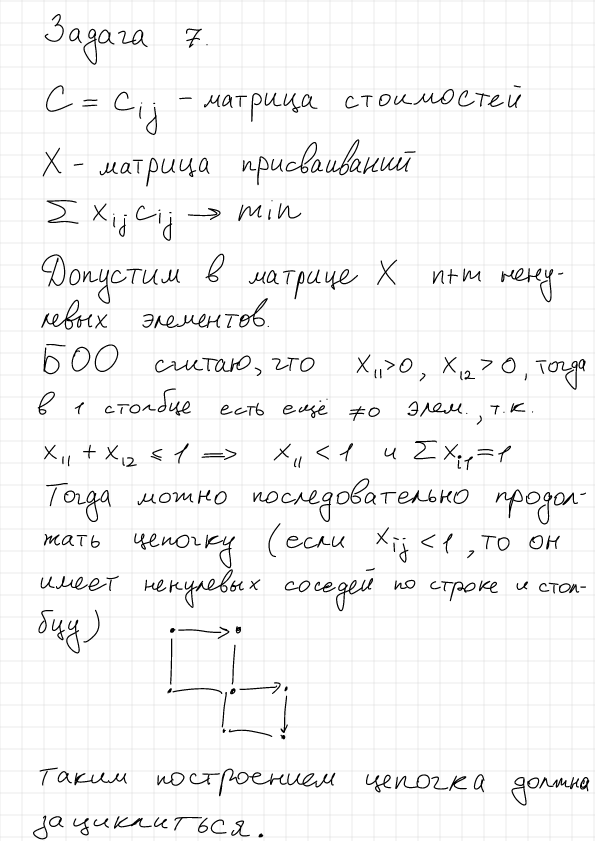 Задача 7.
C = c_{ij} – матрица стоимостей
X – матрица присваиваний
∑ x_{ij} c_{ij} → min
Допустим в матрице X n+m нену-
левых элементов.
БОО считаю, что x_{11}>0, x_{12}>0, тогда
в 1 столбце есть ещё ≠0 элем., т.к.
x_{11} + x_{12} ≤ 1 => x_{11} < 1 и ∑ x_{i1} = 1
Тогда можно последовательно продол-
жать цепочку (если x_{ij} < 1, то он
имеет ненулевых соседей по строке и стол-
бцу)
Таким построением цепочка должна
зациклиться.